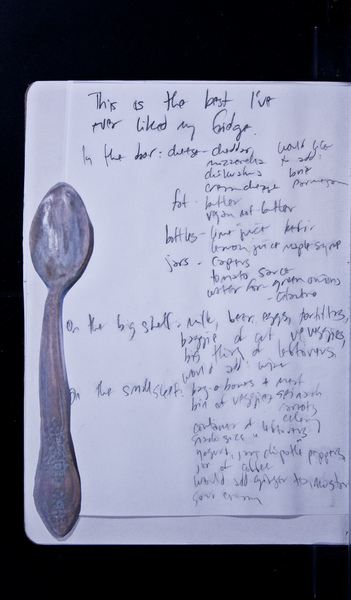 This is the best I've
ever liked my fridge.
In the door: cheese - cheddar, would like
mozzarella to add:
brie
cream cheese parmesan
fat - butter
vegan not-butter
bottles - lime juice kefir
lemon juice maple syrup
jars - capers
tomato sauce
water for green onions
- cilantro
On the big shelf: milk, beer, eggs, tortillas,
baggie of cut up veggies,
big thing of leftovers,
would add: wine
On the small shelf: bag o bones + meat
bin of veggies: spinach
carrots
celery
container of leftovers
yogurt, chipotle peppers
jar of
would add ginger
sour cream